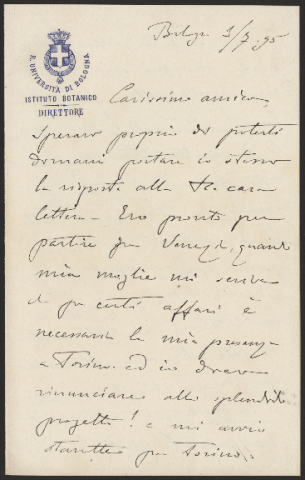 R. UNIVERSITÀ DI BOLOGNA
ISTITUTO BOTANICO
DIRETTORE
Bologna 3/7 95
Carissimo amico,
Speravo proprio di poterti
domani portare io stesso
la risposta alla tua cara
lettera – Ero pronto per
partire per Venezia, quando
mia moglie mi scrive
che per certi affari è
necessaria la mia presenza
a Torino ed io dovrò
rinunciare allo splendido
progetto! e mi avvio
stanotte per Torino.